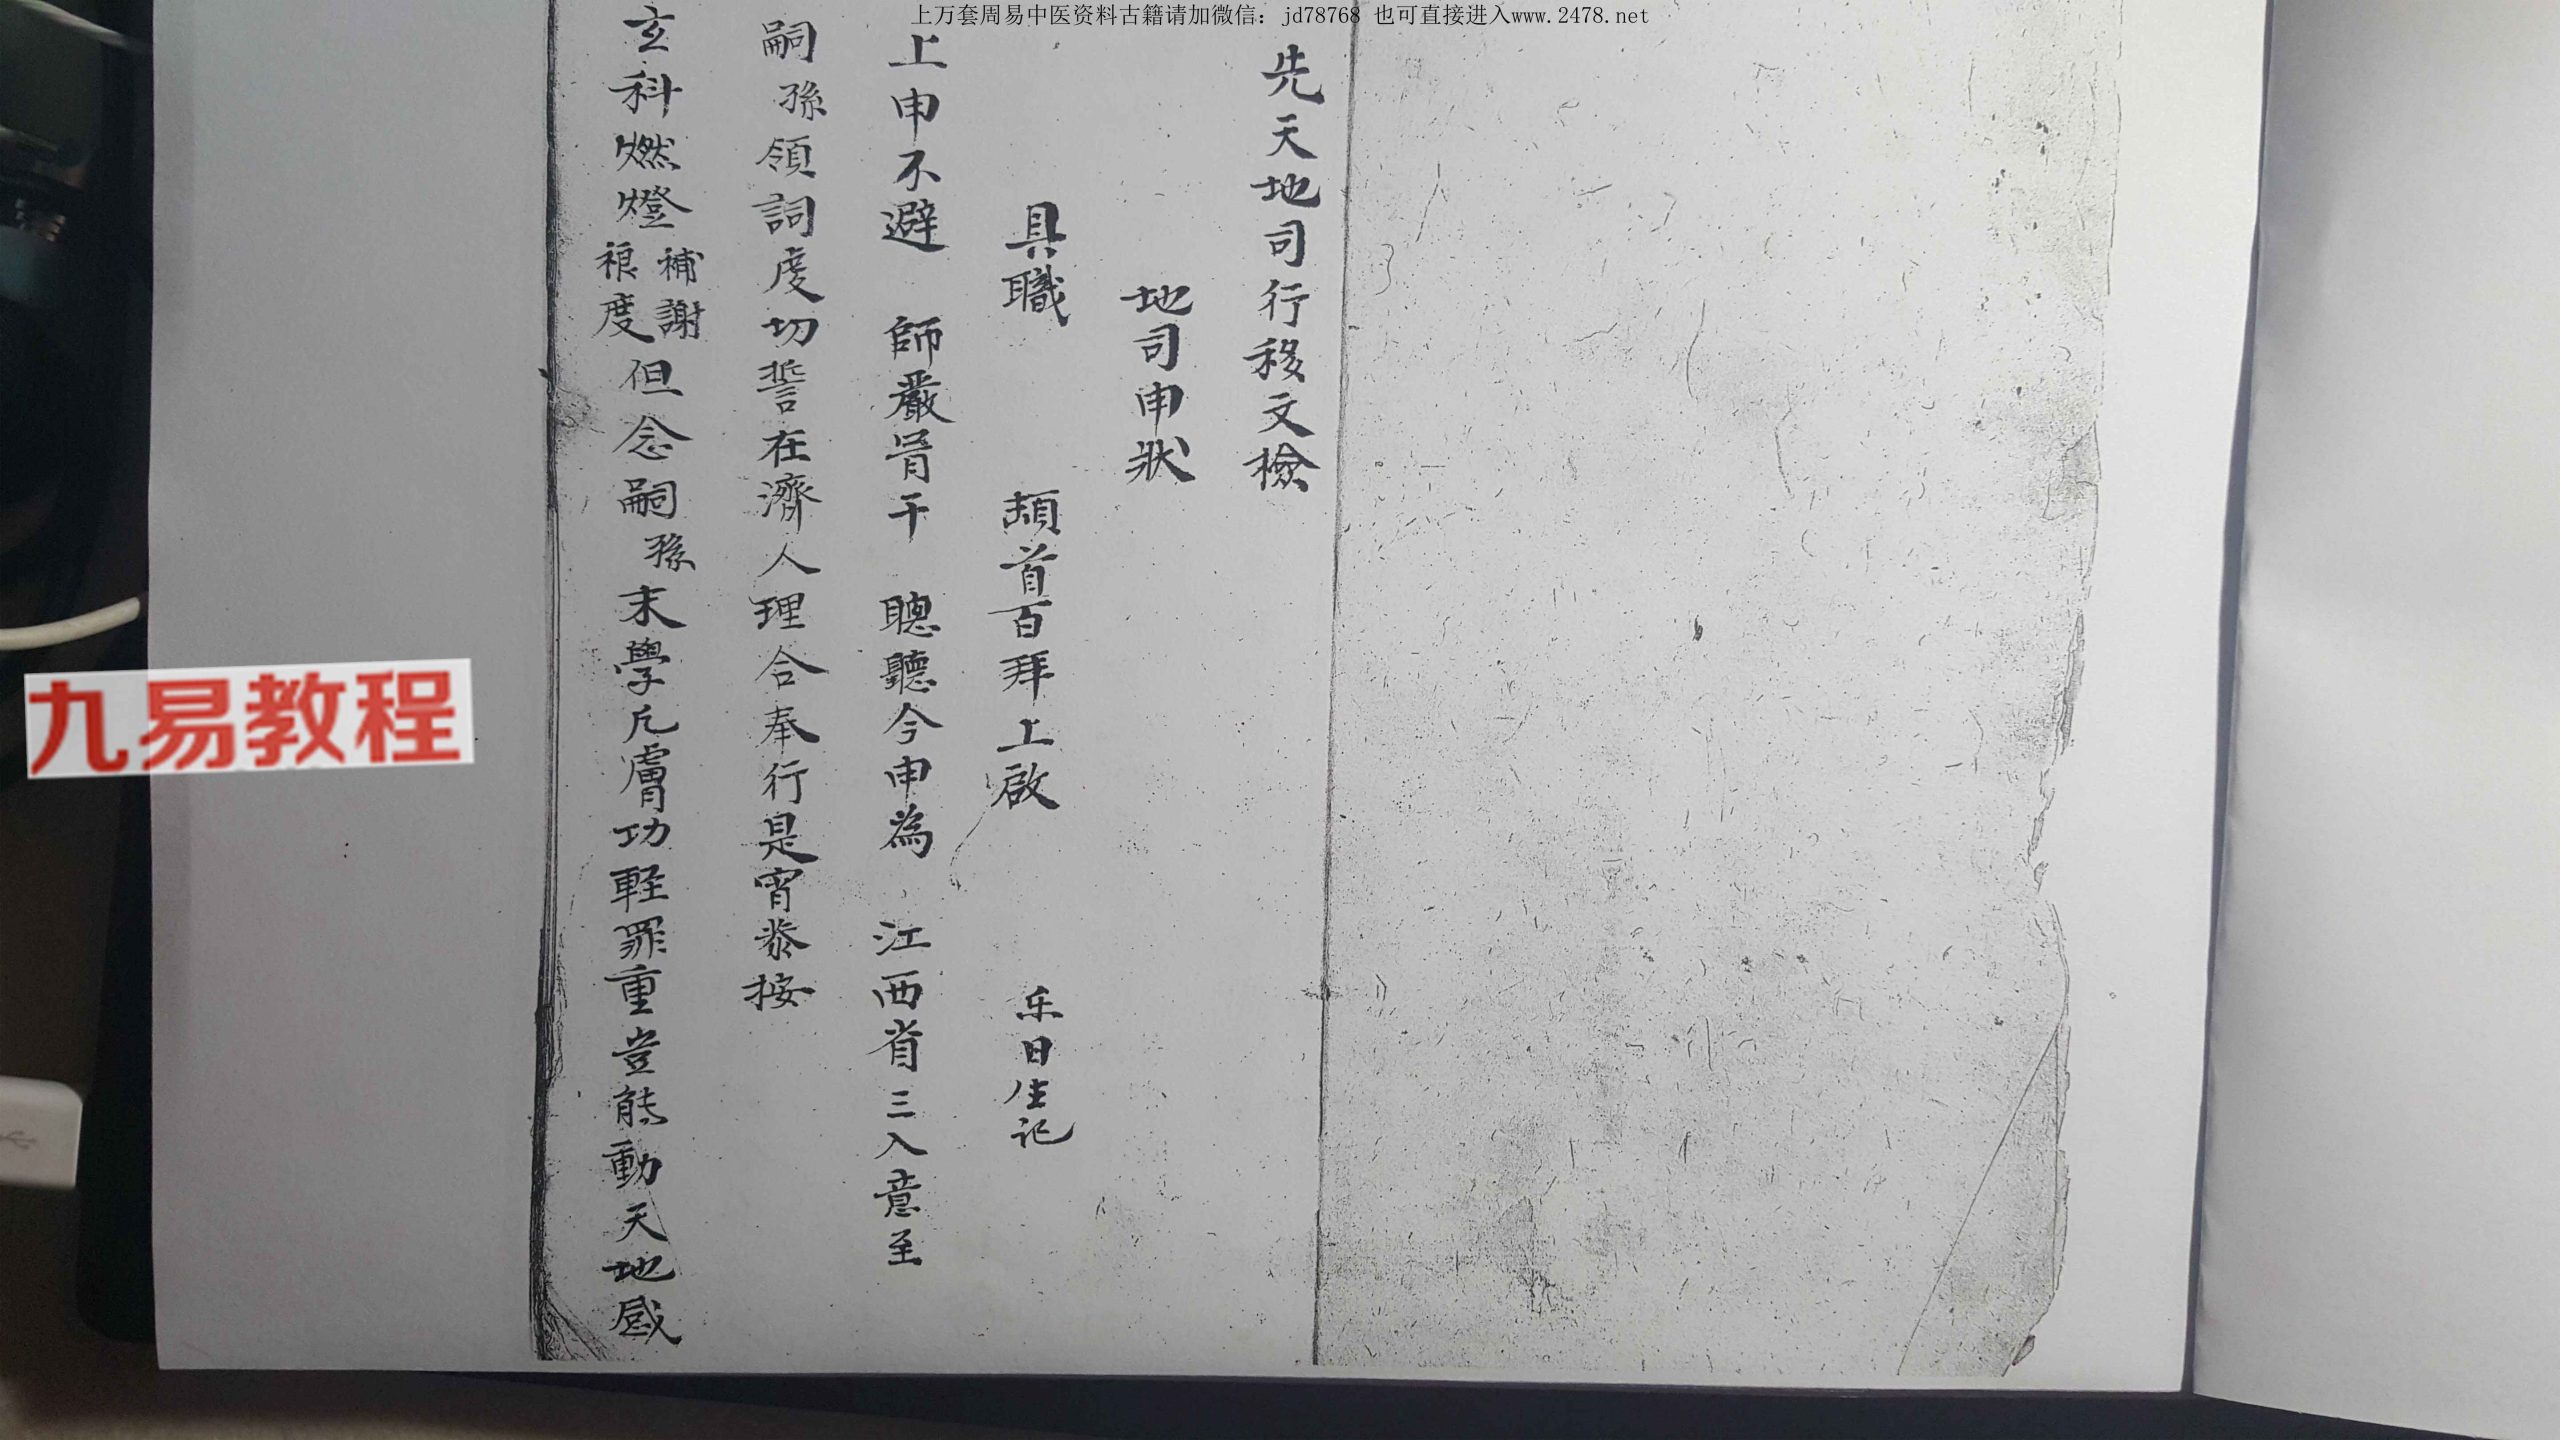 上万套周易中医资料古籍请加微信：jd78768 也可直接进入www.2478.net
先天地司行移文檢
地司申狀
具職 頡首百拜上啟 乐日生记
上申不避 師嚴胥干 聰聽今申為 江西省三入意至
嗣孫領詞虔切誓在濟人理合奉行是宵恭按
玄科燃燈補謝祿度但念嗣孫末學凡膚功輕罪重豈能動天地感
九易教程